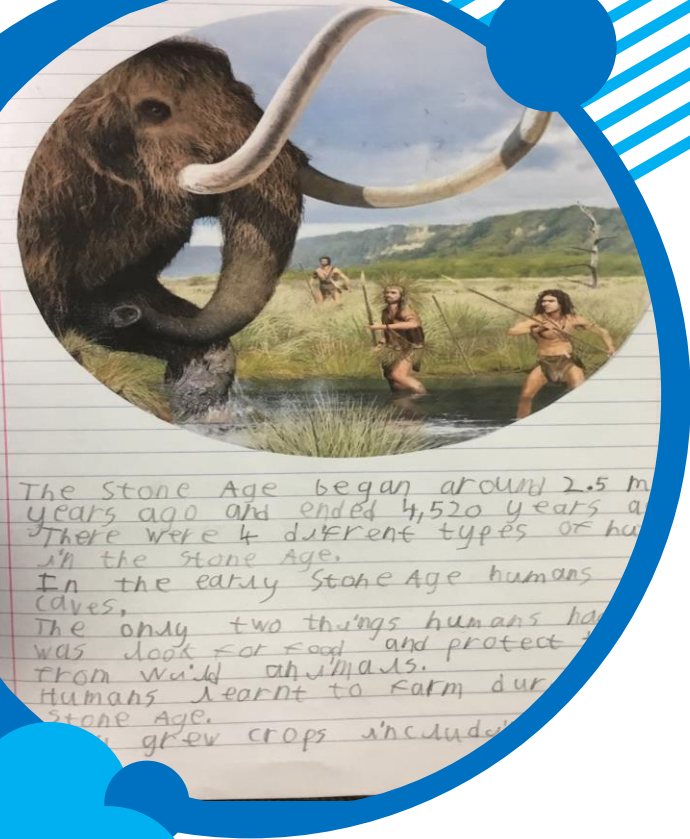 The Stone Age began around 2.5 m
years ago and ended 4,520 years a
There were 4 diffrent types of hu
in the Stone Age.
In the early Stone Age humans
caves,
The only two things humans ha
was look for food and protect
from wild animals.
Humans learnt to farm dur
Stone Age.
grew crops includ